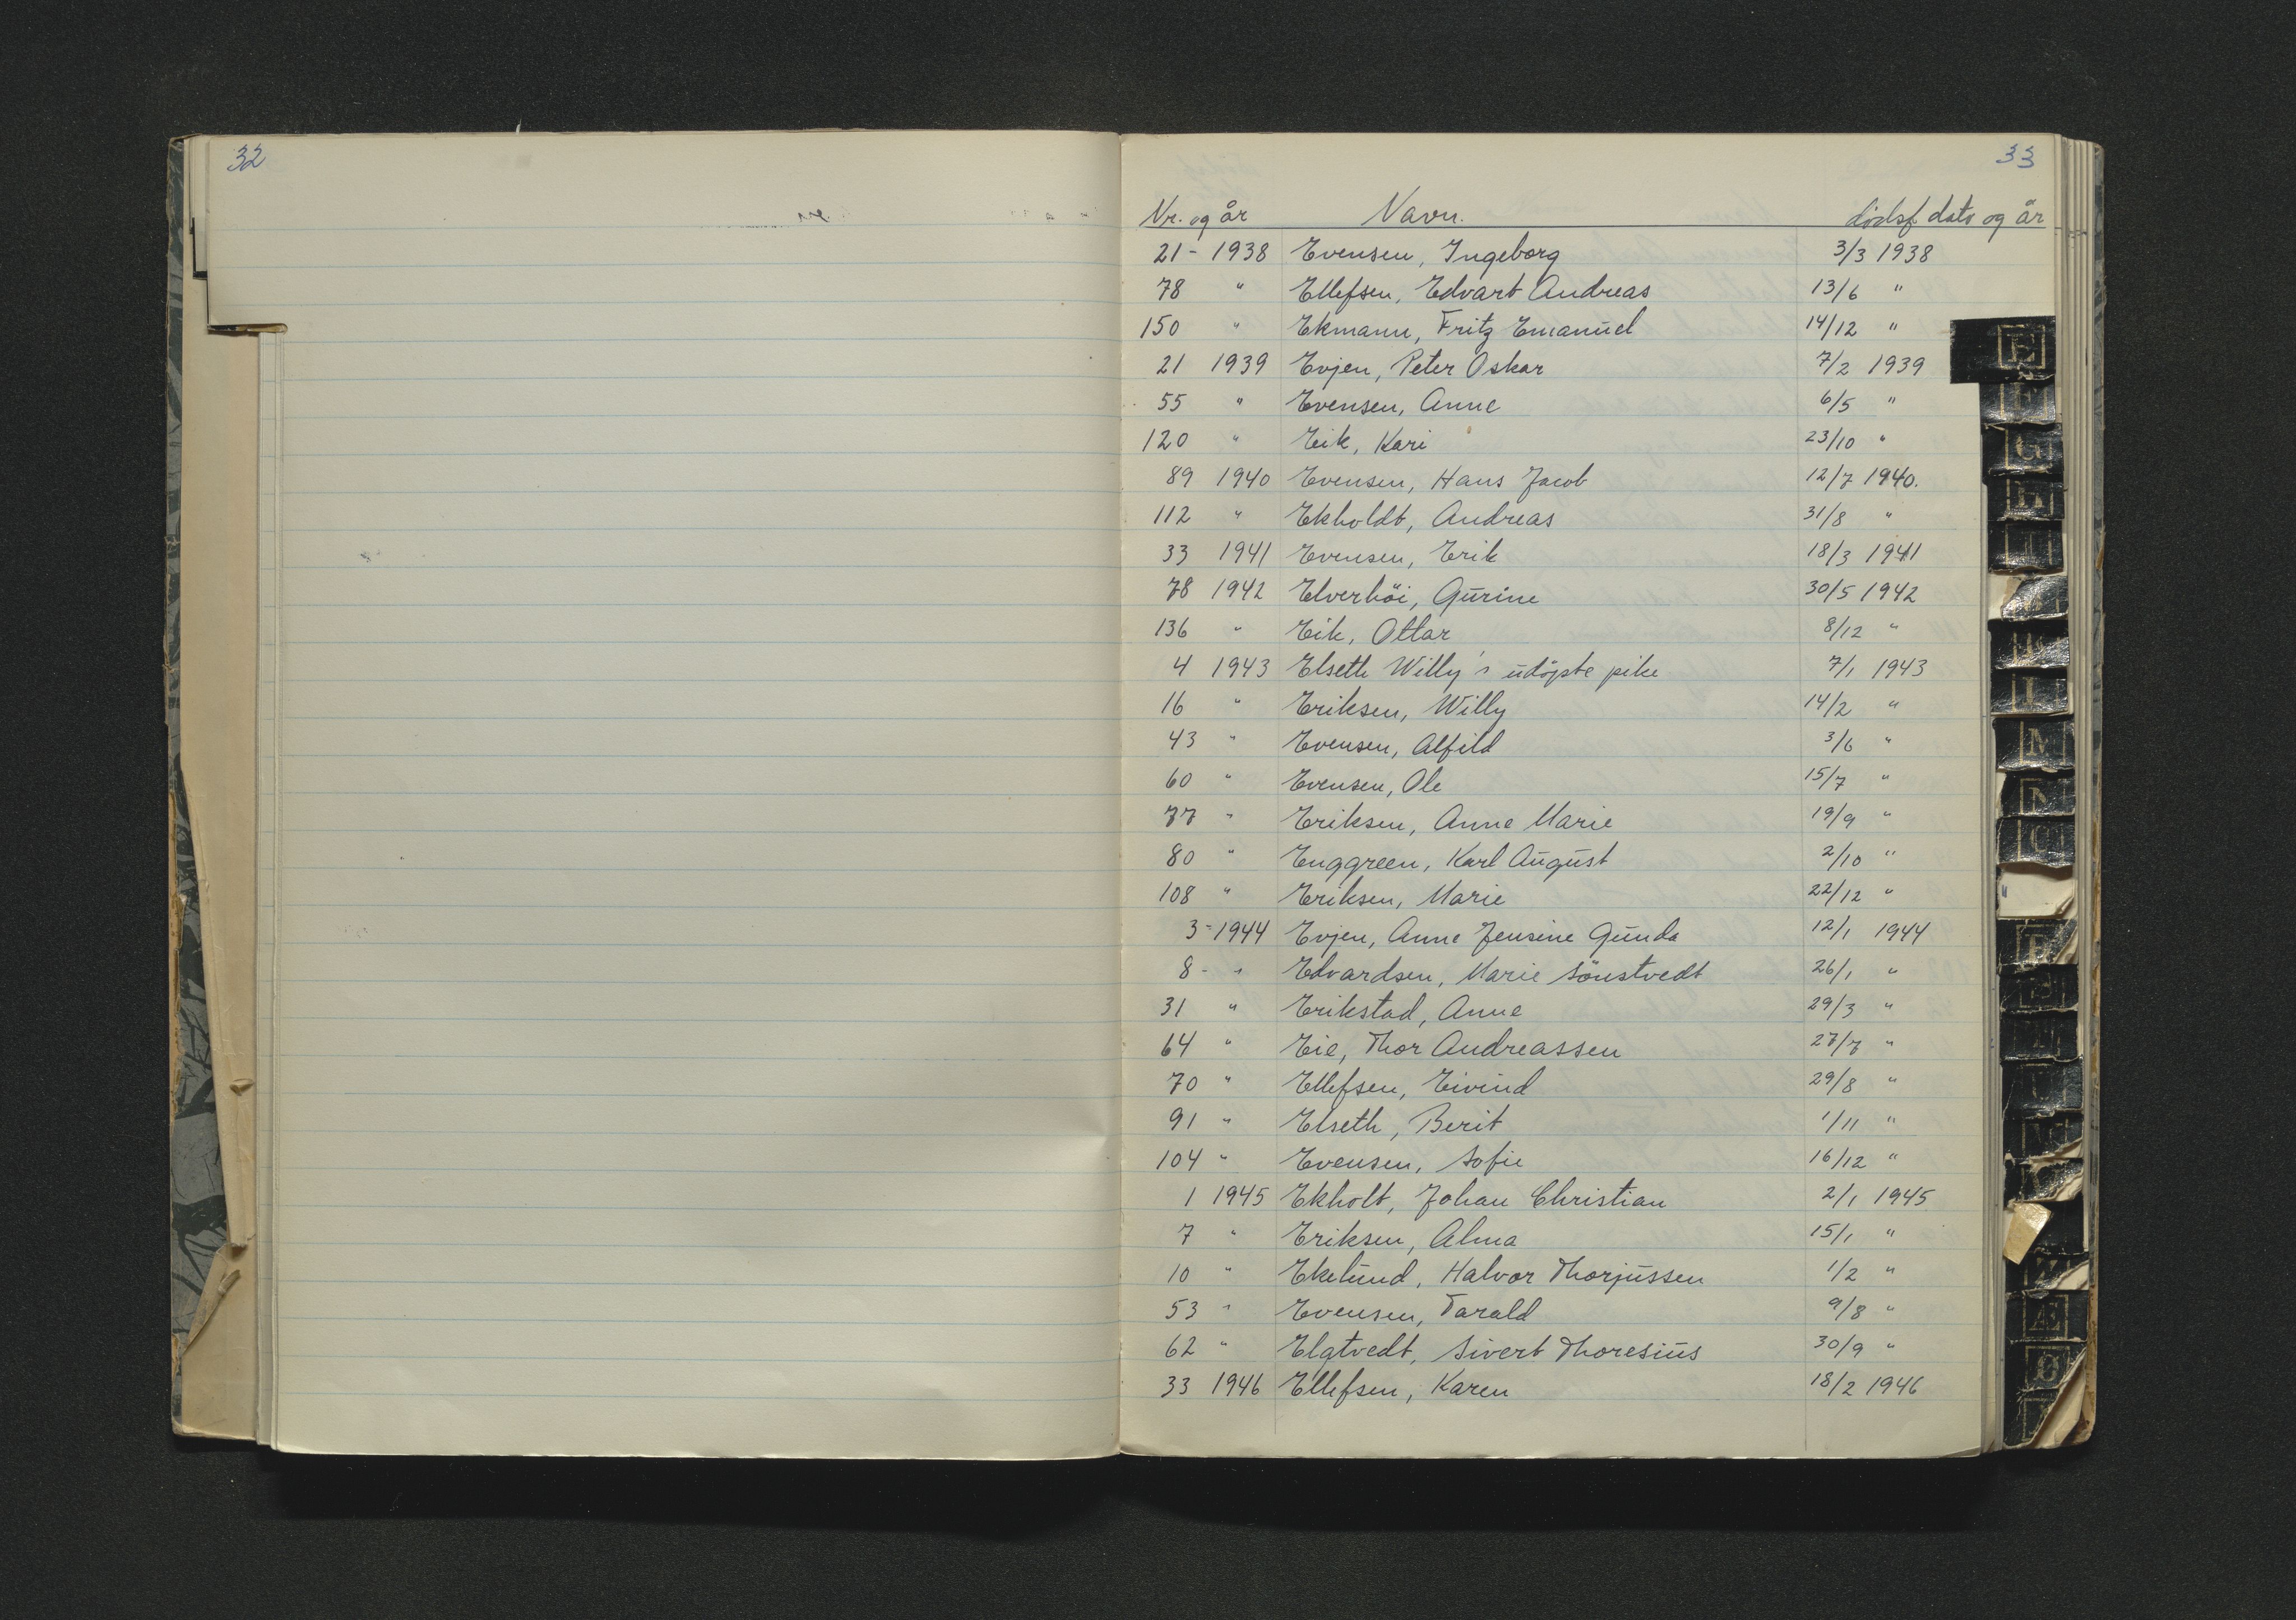 32
33
Nr. og år Navn. dødsf. dato og år
21 - 1938 Evensen, Ingeborg 3/3 1938
78 " Ellefsen, Edvart Andreas 13/6 "
150 " Ekmann, Fritz Emanuel 14/12 "
21 1939 Evjen, Peter Oskar 7/2 1939
55 " Evensen, Anne 6/5 "
120 " Eik, Kari 23/10 "
89 1940 Evensen, Hans Jacob 12/7 1940.
112 " Ekholdt, Andreas 31/8 "
33 1941 Evensen, Erik 18/3 1941
78 1942 Elverhöi, Gurine 30/5 1942
136 " Eik, Ottar 8/12 "
4 1943 Elseth Willy's udöpte pike 7/1 1943
16 " Eriksen, Willy 14/2 "
43 " Evensen, Alfild 3/6 "
60 " Evensen, Ole 15/7 "
77 " Eriksen, Anne Marie 19/9 "
80 " Enggreen, Karl August 2/10 "
108 " Eriksen, Marie 22/12 "
3 - 1944 Evjen, Anne Jensine Gunda 12/1 1944
8 - " Edvardsen, Marie Sönstvedt 26/1 "
31 " Erikstad, Anne 29/3 "
64 " Eie, Thor Andreassen 27/7 "
70 " Ellefsen, Eivind 29/8 "
91 " Elseth, Berit 1/11 "
104 " Evensen, Sofie 16/12 "
1 1945 Ekholt, Johan Christian 2/1 1945
7 " Eriksen, Alma 15/1 "
10 " Ekelund, Halvor Thorjussen 1/2 "
53 " Evensen, Tarald 9/8 "
62 " Elgtvedt, Sivert Thoresius 30/9 "
33 1946 Ellefsen, Karen 18/2 1946
E
F
G
H
I
M
N
Æ
Ø